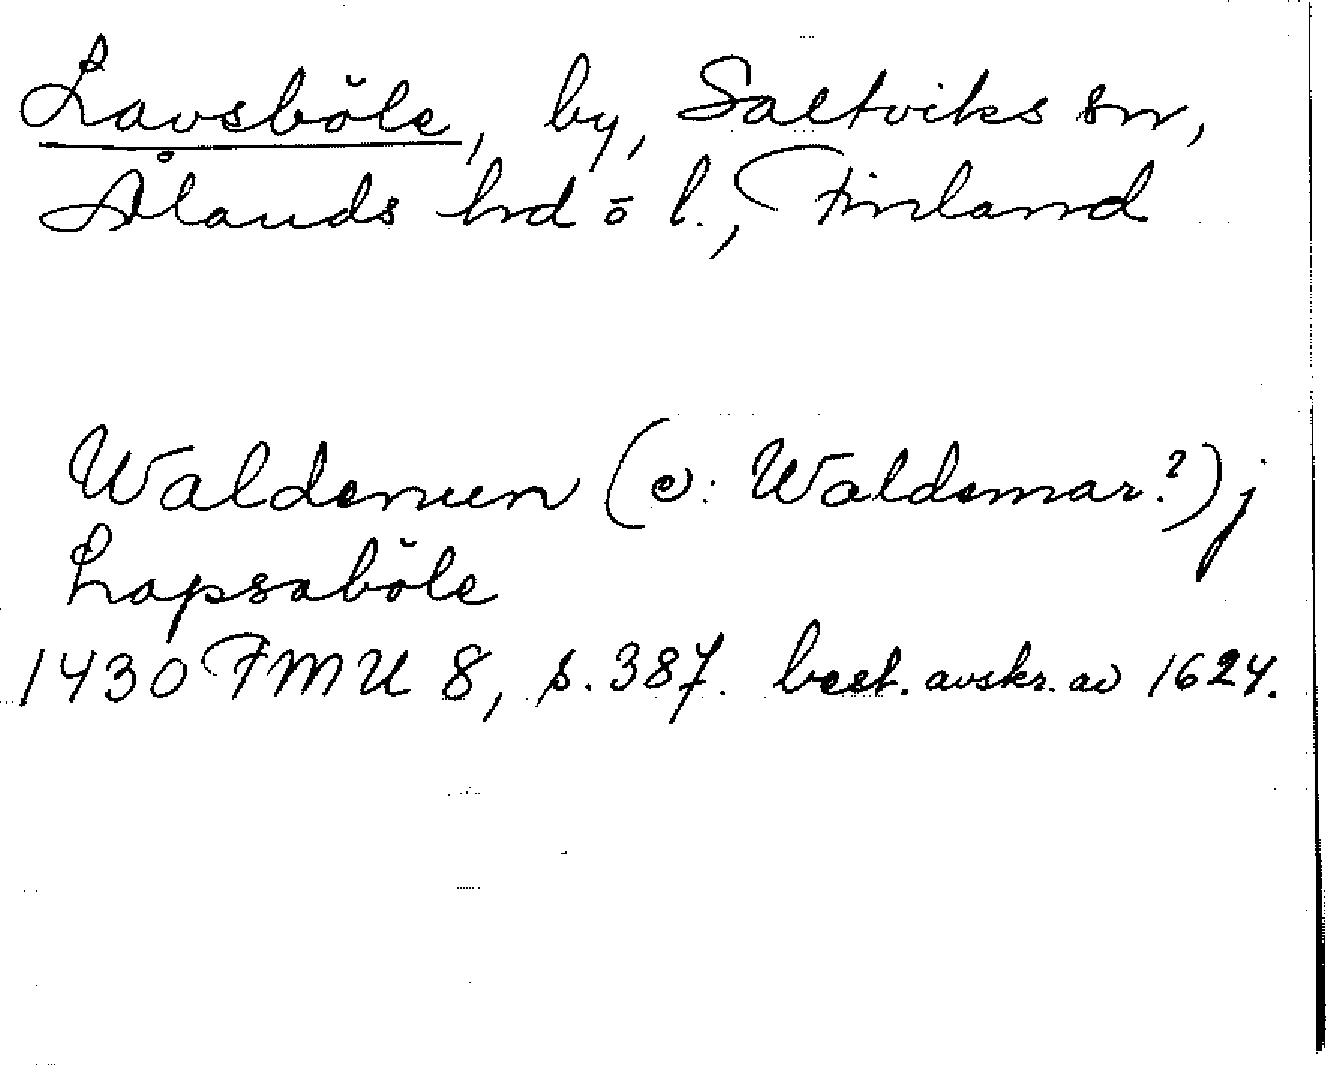 Lavsböle, by, Saltviks sn,
Ålands hrd o l., Finland
Waldemen (ɔ: Waldemar?) j
Lapsaböle
1430 FMU 8, s. 387. avskr. av 1624.